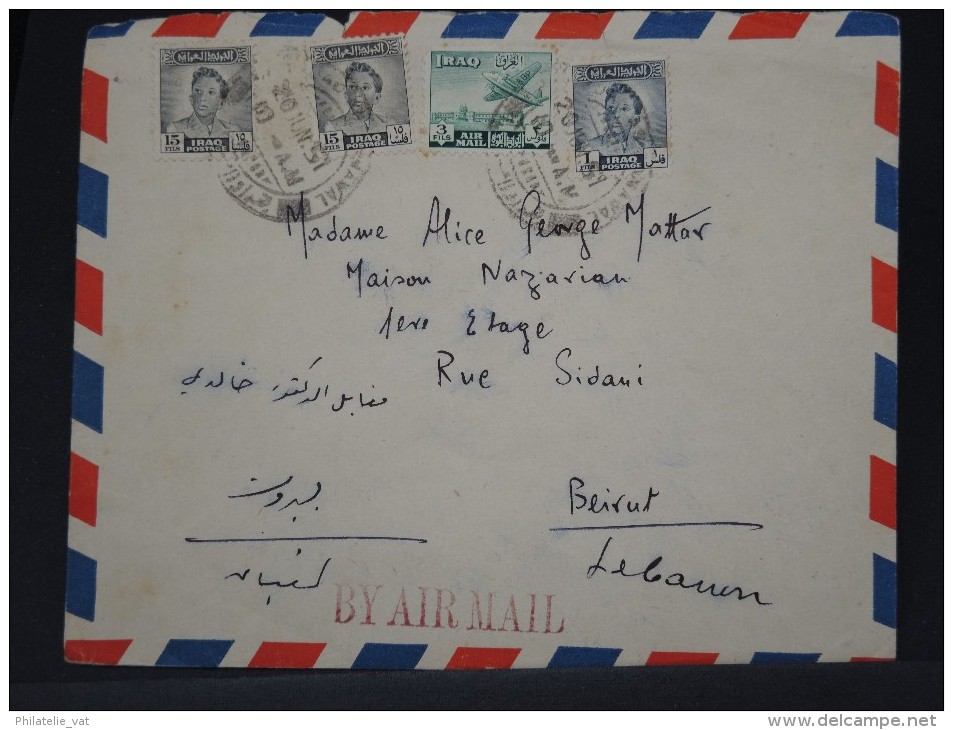 الدولة العراقية
15 FILS
١٥ فلس
IRAQ
POSTAGE
الدولة العراقية
15 FILS
١٥ فلس
IRAQ
POSTAGE
IRAQ
العراق
3 FILS
AIR MAIL
البريد الجوي
٣ فلوس
الدولة العراقية
1 FILS
١ فلس
IRAQ
POSTAGE
20 JUN 51
Madame Alice George Mattar
Maison Nazarian
1ere Etage
Rue Sidani
مقابل الدكتور خالدي
بيروت
لبنان
Beirut
Lebanon
BY AIR MAIL
Philatelie_vat
www.delcampe.net